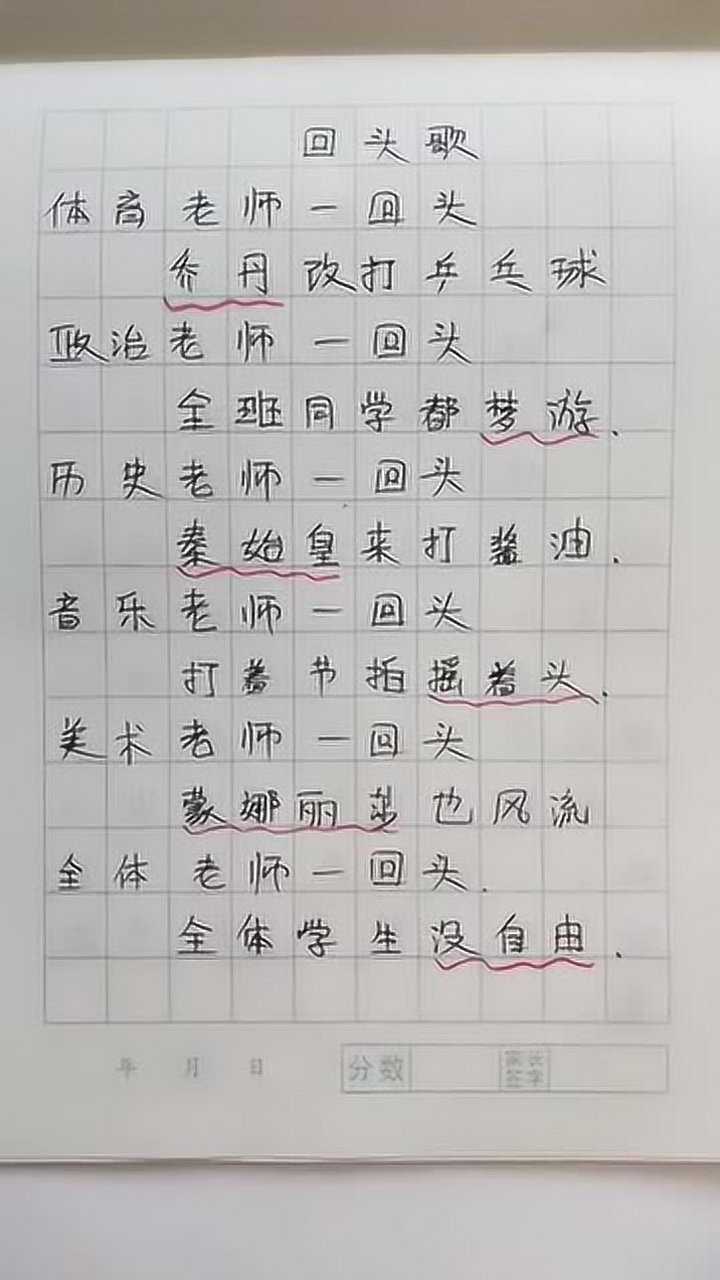 回头歌
体育老师一回头
乔丹改打乒乓球
政治老师一回头
全班同学都梦游.
历史老师一回头
秦始皇来打酱油.
音乐老师一回头
打着节拍摇着头.
美术老师一回头
蒙娜丽莎也风流
全体老师一回头.
全体学生没自由.
年 月 日 分数 家长签字